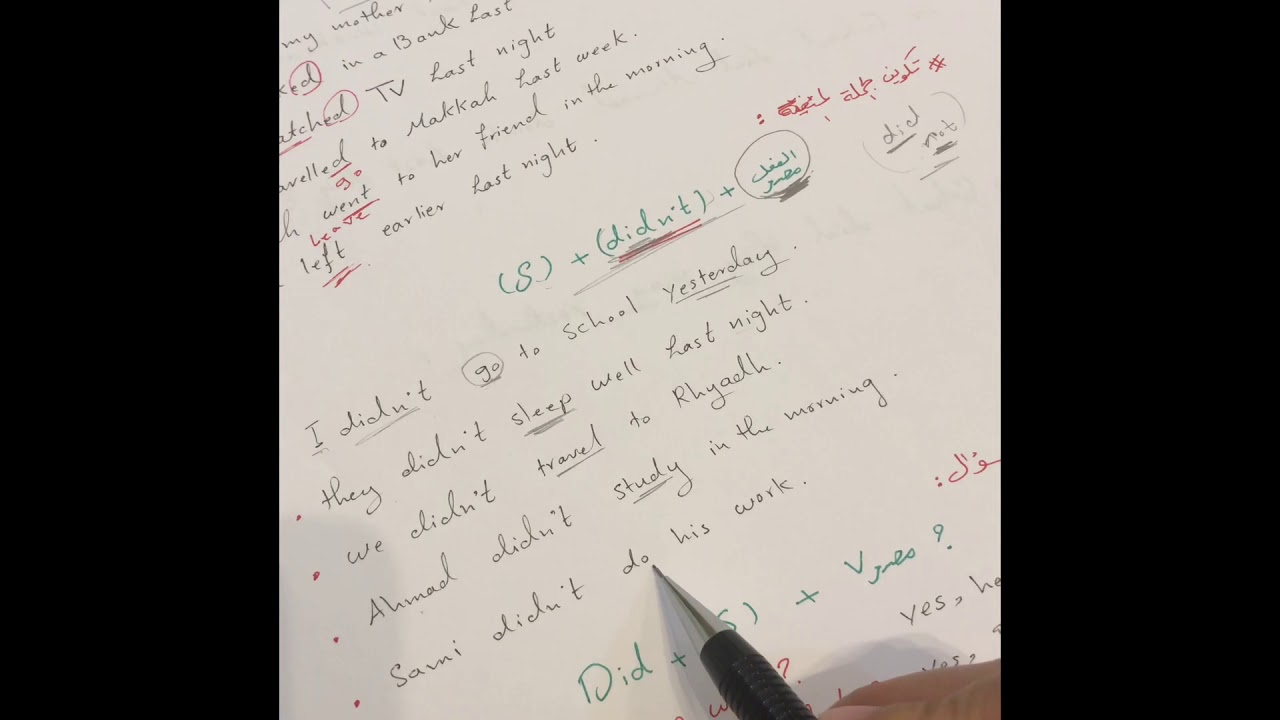 my mother
ked in a Bank last
atched TV last night
avelled to Makkah last week.
go
went to her friend in the morning.
leave
left earlier last night.
# تكوين جملة منفية:
did not
(S) + (didn't) + الفعل مصدر
I didn't go to school yesterday.
they didn't sleep well last night.
we didn't travel to Rhyadh.
Ahmad didn't study in the morning.
Sami didn't do his work.
سؤال:
Did + S) + V مصدر ?
yes, he
yes,